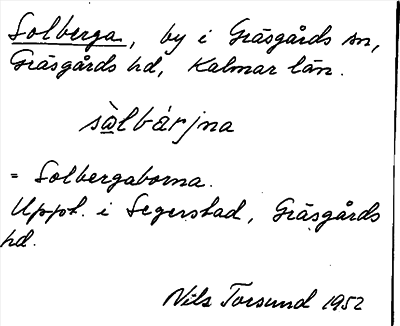 Solberga, by i Gräsgårds sn,
Gräsgårds hd, Kalmar län.
sàlbárjna
= Solbergaborna.
Uppt. i Segerstad, Gräsgårds
hd.
Nils Torsund 1952